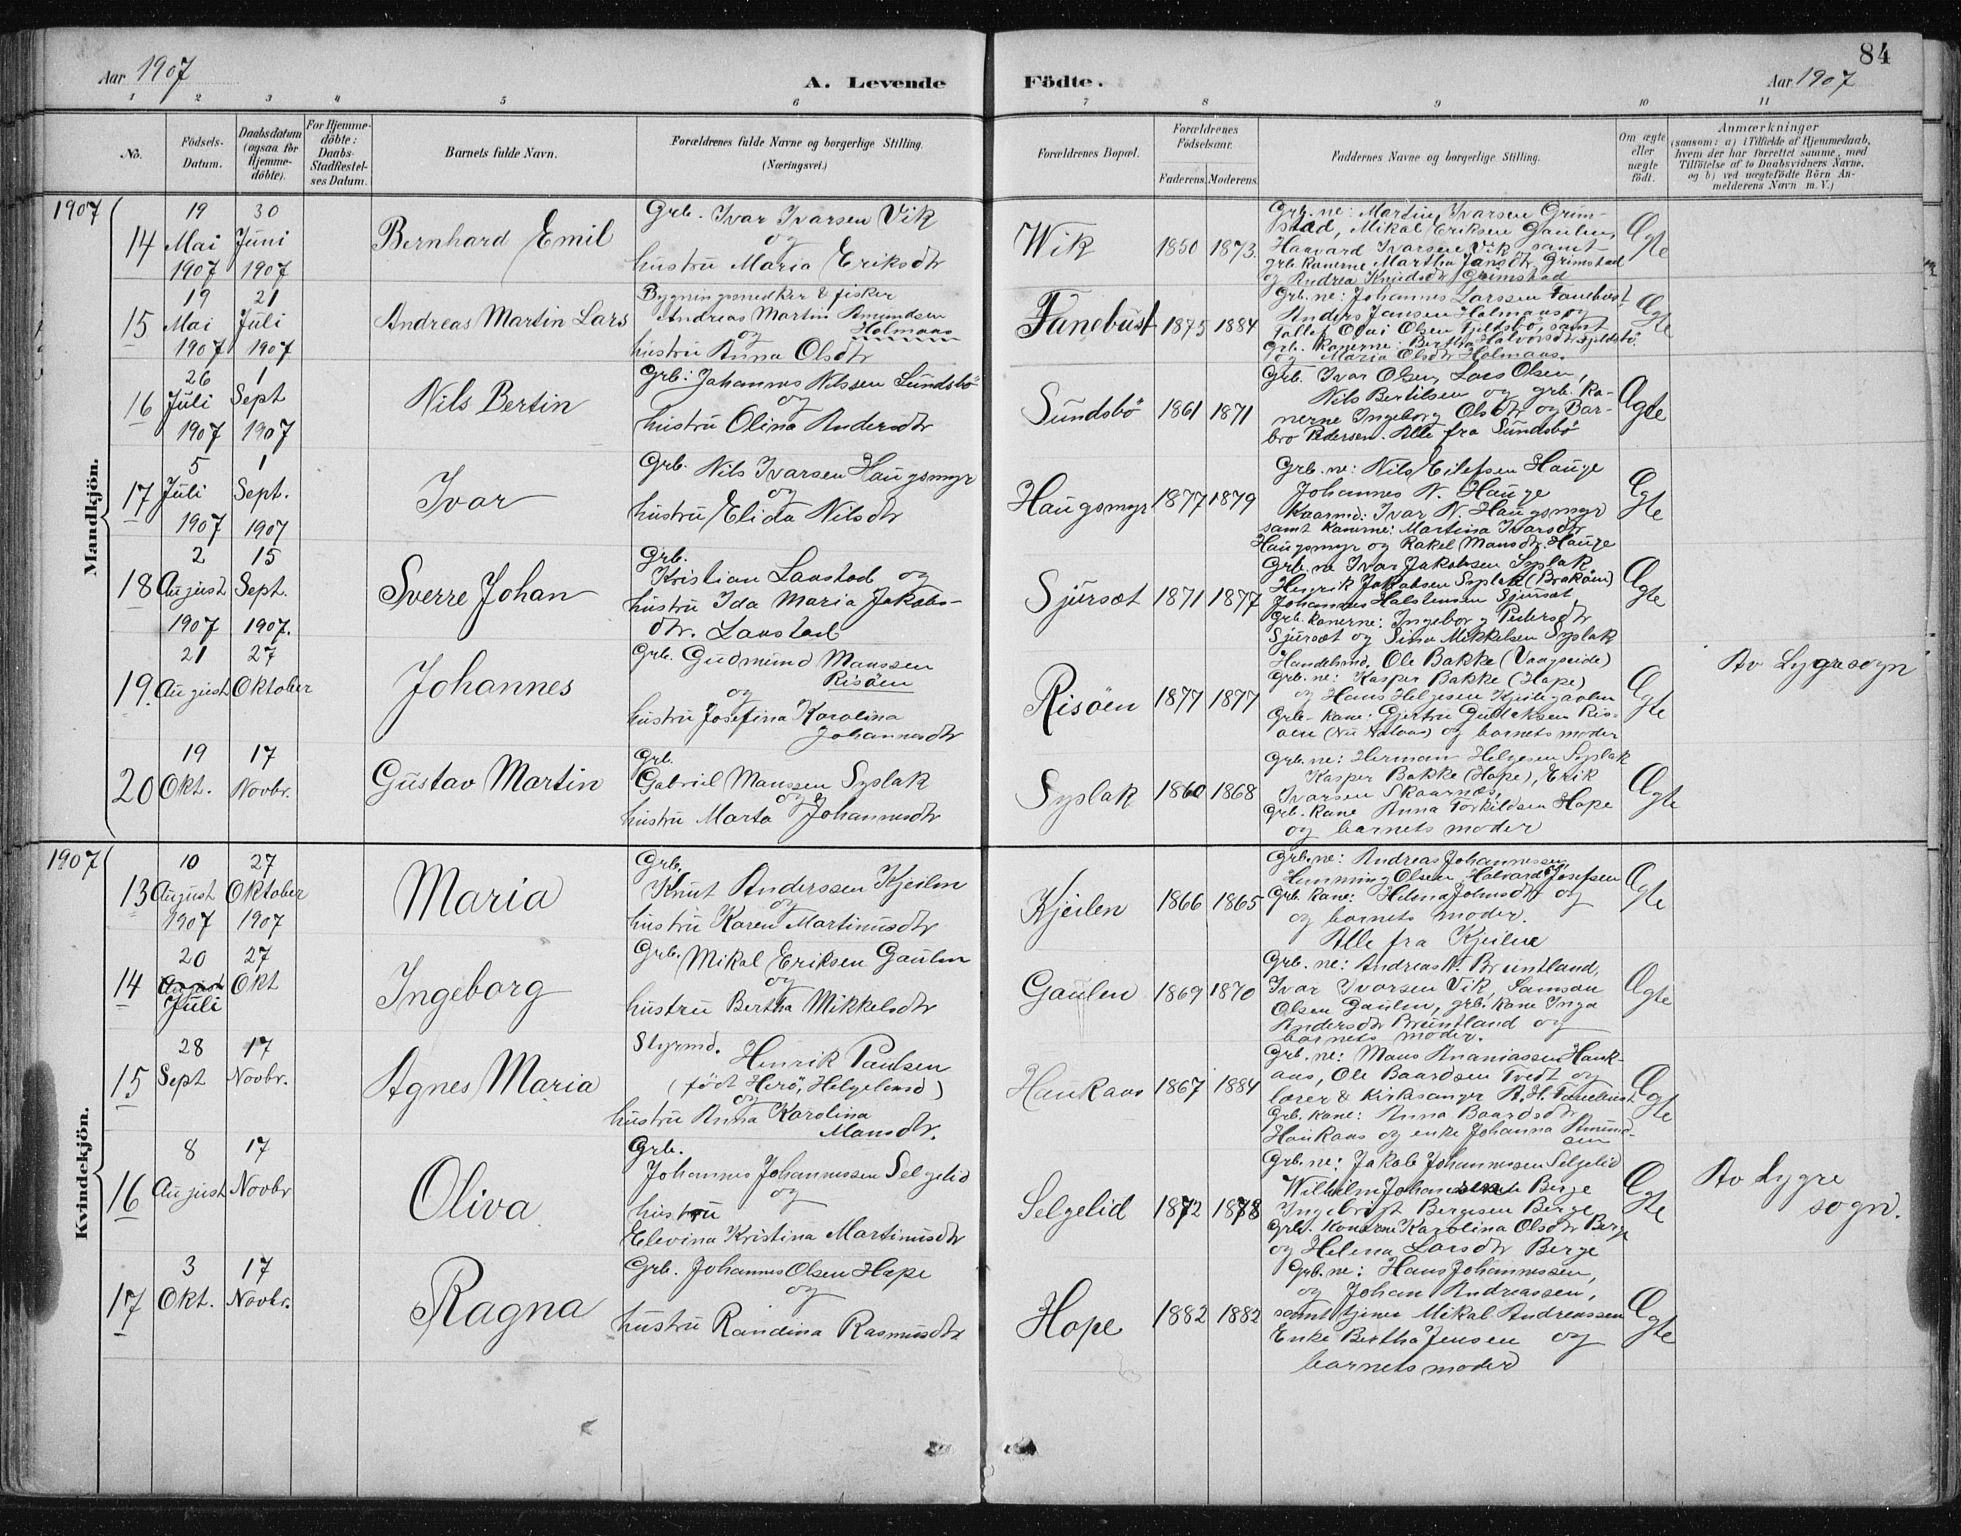 84
Aar 1907
A. Levende
Födte.
Aar 1907
1 2 3 4 5 6 7 8 9 10 11
No.
Födsels-
Datum.
Daabsdatum
(ogsaa for
Hjemme-
döbte).
For Hjemme-
döbte:
Daabs-
Stadfestel-
ses Datum.
Barnets fulde Navn.
Forældrenes fulde Navne og borgerlige Stilling.
(Næringsvei.)
Forældrenes Bopæl.
Forældrenes
Födselsaar.
Faderens. Moderens.
Faddernes Navne og borgerlige Stilling.
Om ægte
eller
uægte
födt.
Anmærkninger
(saasom: a) i Tilfælde af Hjemmedaab,
hvem der har forrettet samme, med
Tilföielse af to Daabsvidners Navne,
og b) ved uægtefödte Börn An-
melderens Navn m. V.)
Mandkjön.
1907
14
19
Mai
1907
30
Juni
1907
Bernhard Emil
Grb. Ivar Ivarsen Vik
og
hustru Maria Eriksdtr
Wik
1850 1873.
Grb.ne: Martin Ivarsen Grim-
stad, Mikal Eriksen Gaulen,
Haavard Ivarsen Vik samt
grb. kanerne Martha Jansdtr. Grimstad
og Andrea Knudsdtr Grimstad
Ægte
15
19
Mai
1907
21
Juli
1907
Andreas Martin Lars
Bygningsnedker & fisker
Andreas Martin Amundsen
Holmaas
og
hustru Anna Olsdtr
Fanebust
1875 1884
Grb.ne: Johannes Larssen Fanebust
Anders Jansen Holmaas og
Olsen Fjeldsbö, samt
Grb. Kanerne: Bertha Halvorsdtr Fjeldsbö
og Maria Olsdtr Holmaas.
Ægte
16
26
Juli
1907
1
Sept
1907
Nils Bertin
Grb: Johannes Nilssen Sundsbö
og
hustru Olina Andersdtr
Sundsbö
1861 1871
Grb. Ivar Olsen, Lars Olsen,
Nils Bertilsen og grb. ka-
nerne Ingeborg Olsdtr og Bar-
bro Pedersen. Alle fra Sundsbö
Ægte
17
5
Juli
1907
1
Sept.
1907
Ivar
Grb. Nils Ivarsen Haugsmyr
og
hustru Elida Nilsdtr
Haugsmyr
1877 1879
Grb.ne: Nils Eilefsen Hauge
Johannes N. Hauge
Kaarmd: Ivar N. Haugsmyr
samt kanerne: Martina Ivarsdtr
Haugsmyr og Rakel Mansdtr. Hauge
Ægte
18
2
August
1907
15
Sept.
1907.
Sverre Johan
Grb.
Kristian Laastad og
hustru Ida Maria Jakobs-
dtr. Laastad
Sjursæt
1871 1877
Grb.ne Ivar Jakobsen Syslak
Henrik Jakobsen Syslak (Braköen)
Johannes Halstensen Sjursæt
Grb. kanerne: Ingeborg Pedersdtr
Sjursæt og Sina Mikkelsen Syslak
Ægte
19.
21
August
27
Oktober
Johannes
Grb. Gudmund Manssen
Risöen
og
hustru Josefina Karolina
Johannesdtr
Risöen
1877 1877
Handelsmd. Ole Bakke (Vaagseide)
Grb.ne: Kasper Bakke (Hope)
og Hans Helgesen Kjeilegaalen
Grb. kane: Gjertru Gullaksen Ris-
öen og barnets moder
Ægte
Av Lygresogn
20
19
Okt.
17
Novbr.
Gustav Martin
Grb.
Gabriel Manssen Syslak
og
hustru Marta Johannesdtr
Syslak
1860 1868
Grb.ne: Herman Helgesen Syslak
Kasper Bakke (Hope), Erik
Ivarsen Skaarnæs,
Grb. kane Anna Torkildsen Hope
og barnets moder
Ægte
Kvindekjön.
1907
13
10
August
1907
27
Oktober
1907
Maria
Grb.
Knut Anderssen Kjeilen
og
hustru Karen Martinusdtr
Kjeilen
1866 1865
Grb.ne: Andreas Johannessen,
Hemming Olsen, Halvard Josefsen
Grb. kane: Helena Johnsdtr og
og barnets moder.
Alle fra Kjeilen
Ægte
14
20
August
Juli
27
Okt
Ingeborg
Grb. Mikal Eriksen Gaulen
og
hustru Bertha Mikkelsdtr
Gaulen
1869 1870
Grb.ne: Andreas N. Bruntland,
Ivar Ivarsen Vik, Samson
Olsen Gaulen, grb. kane Inga
Andersdtr Bruntland og
barnets moder.
Ægte
15
28
Sept
17
Novbr.
Agnes Maria
Styrmd. Henrik Paulsen
(födt Herö, Helgeland)
og
hustru Anna Karolina
Mansdtr.
Haukaas
1867 1884
Grb.ne: Mans Ananiassen Hauk-
aas, Ole Baardsen Tvedt og
lærer & kirkesanger A. H. Fanebust
Grb. kane: Anna Baardsdtr
Haukaas og enke Johanna Amund-
sen
Ægte
16
8
August
17
Novbr
Oliva
Grb.
Johannes Johannessen Selgelid
og
hustru
Elevina Kristina Martinusdtr
Selgelid
1872 1878
Grb.ne: Jakob Johannessen Selgelid
Wilhelm Johannessen Berge
Ingebrigt Bergesen Berge
Grb. Konerne Karolina Olsdtr Berge
og Helena Larsdtr Berge
Ægte
Av Lygre
sogn.
17
3
Okt.
17
Novbr.
Ragna
Grb. Johannes Olsen Hope
og
hustru Randina Rasmusdtr
Hope
1882 1882
Grb.ne: Hans Johannessen,
og Johan Andreassen,
samt tjener Mikal Andreassen
Enke Bertha Jensen og
barnets moder
Ægte